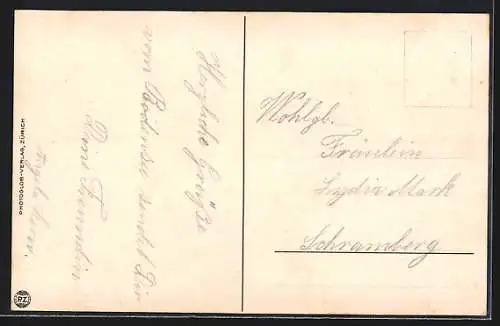 Herzliche Grüße
vom Bodensee sendet Dir
Deine Freundin
Wohlgb.
Fräulein
Lydia Mark
Schramberg
PHOTOGLOB-VERLAG, ZÜRICH
PZ